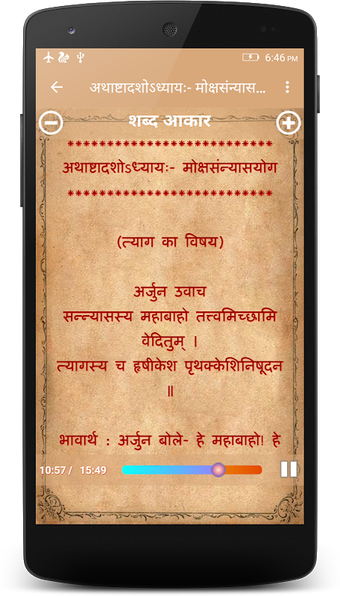 6:46 PM
अथाष्टादशोऽध्यायः- मोक्षसंन्यास...
शब्द आकार
अथाष्टादशोऽध्यायः- मोक्षसंन्यासयोग
(त्याग का विषय)
अर्जुन उवाच
सन्न्यासस्य महाबाहो तत्त्वमिच्छामि
वेदितुम् ।
त्यागस्य च हृषीकेश पृथक्केशिनिषूदन
॥
भावार्थ : अर्जुन बोले- हे महाबाहो! हे
10:57 / 15:49